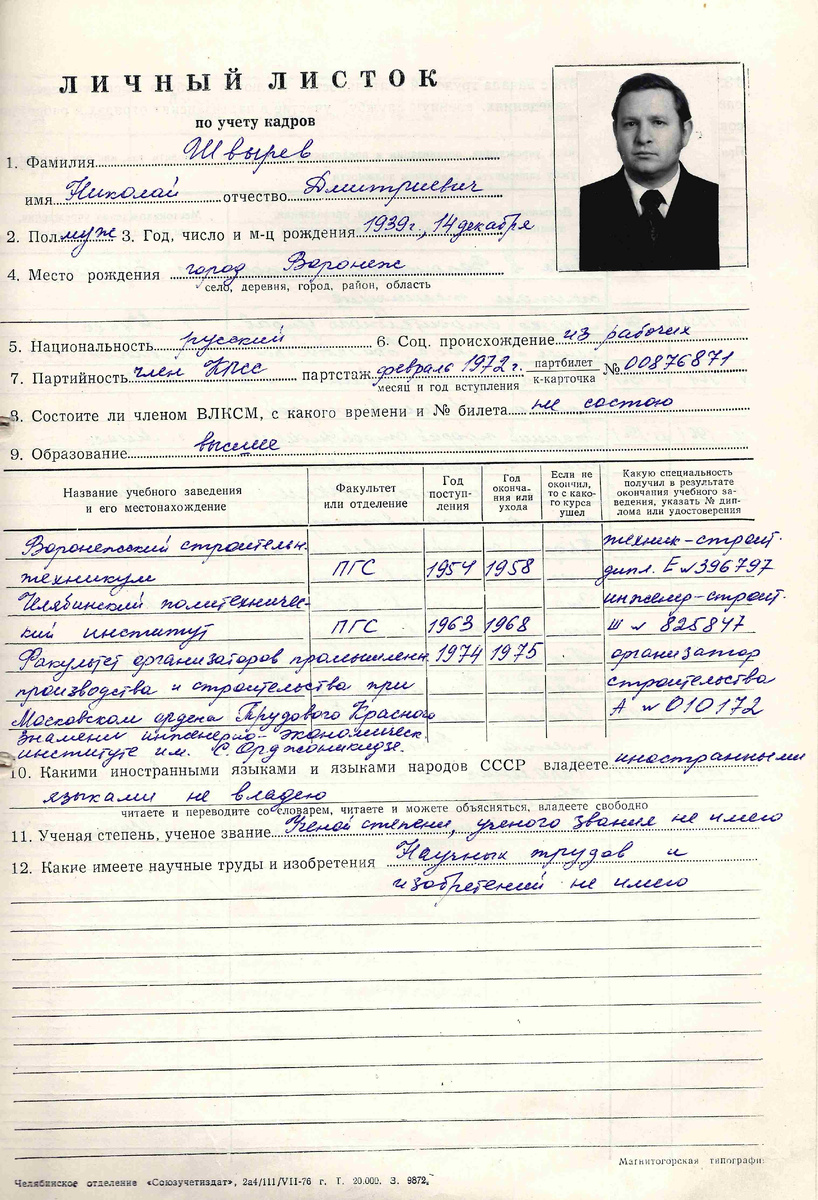 ЛИЧНЫЙ ЛИСТОК
по учету кадров
1. Фамилия Швырев
имя Николай отчество Дмитриевич
2. Пол муж 3. Год, число и м-ц рождения 1939г., 14 декабря
4. Место рождения город Воронеж
село, деревня, город, район, область
5. Национальность русский 6. Соц. происхождение из рабочих
7. Партийность член КПСС партстаж февраль 1972 г. партбилет № 00876871
месяц и год вступления к-карточка
8. Состоите ли членом ВЛКСМ, с какого времени и № билета не состою
9. Образование высшее
Название учебного заведения и его местонахождение
Факультет или отделение
Год поступ-
ления
Год оконча-
ния или ухода
Если не окончил, то с како-
го курса ушел
Какую специальность получил в результате окончания учебного за-
ведения, указать № дип-
лома или удостоверения
Воронежский строительн. техник-строит.
техникум ПГС 1954 1958 дипл. Е № 396797
Челябинский политехничес- инженер-строит.
кий институт ПГС 1963 1968 Ш № 825847
Факультет организаторов промышленн. 1974 1975 организатор
производства и строительства при строительства
Московском ордена Трудового Красного А № 010172
Знамени инженерно-экономическ.
институте им. С. Орджоникидзе.
10. Какими иностранными языками и языками народов СССР владеете иностранными
языками не владею
читаете и переводите со словарем, читаете и можете объясняться, владеете свободно
11. Ученая степень, ученое звание Ученой степени, ученого звания не имею
12. Какие имеете научные труды и изобретения Научных трудов и
изобретений не имею
Магнитогорская типографи
Челябинское отделение «Союзучетиздат», 2а4/111/VII-76 г. Т. 20.000. З. 9872.